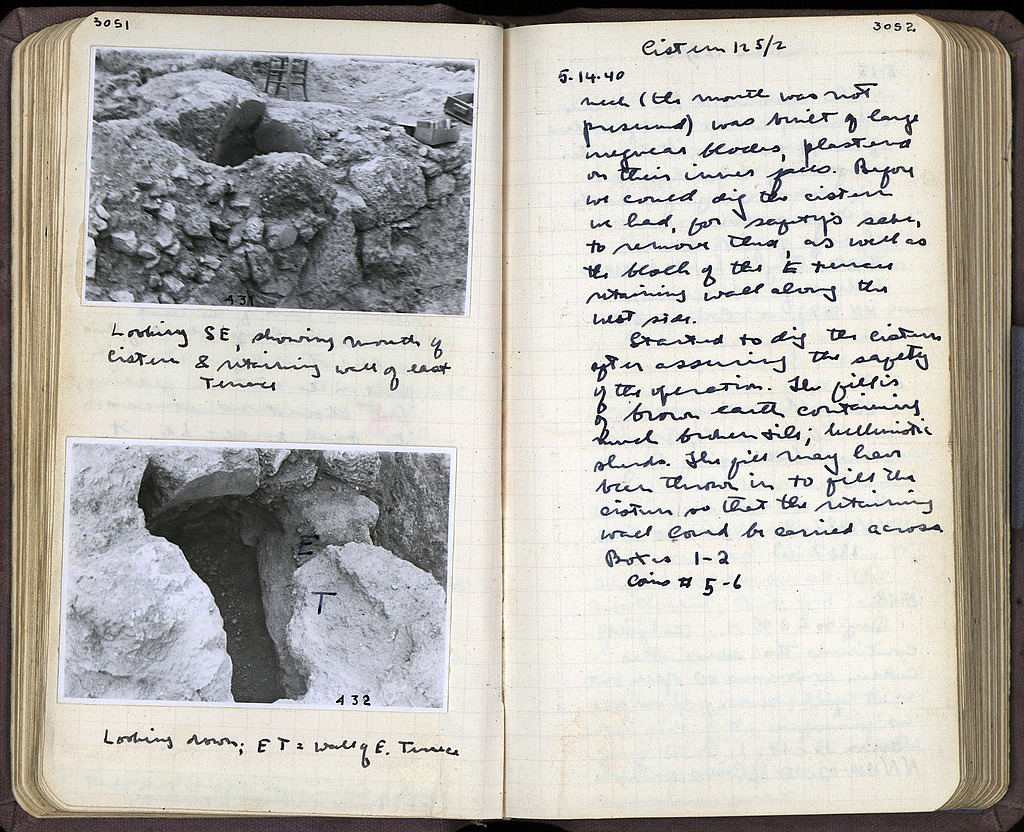 3051
431
Looking SE, showing mouth of
Cistern & retaining wall of east
Terrace
E
T
432
Looking down; E T = wall of E. Terrace
3052
Cistern 12 5/2
5-14-40
neck (the mouth was not
preserved) was built of large
irregular blocks, plastered
on their inner faces. Before
we could dig the cistern
we had, for safety's sake,
to remove this, as well as
the block of the E terrace
retaining wall along the
west side.
Started to dig the cistern
after assuring the safety
of the operation. The fill is
of brown earth containing
much broken tile; hellenistic
sherds. The fill may have
been thrown in to fill the
cistern so that the retaining
wall could be carried across
Boxes 1-2
Coins # 5-6